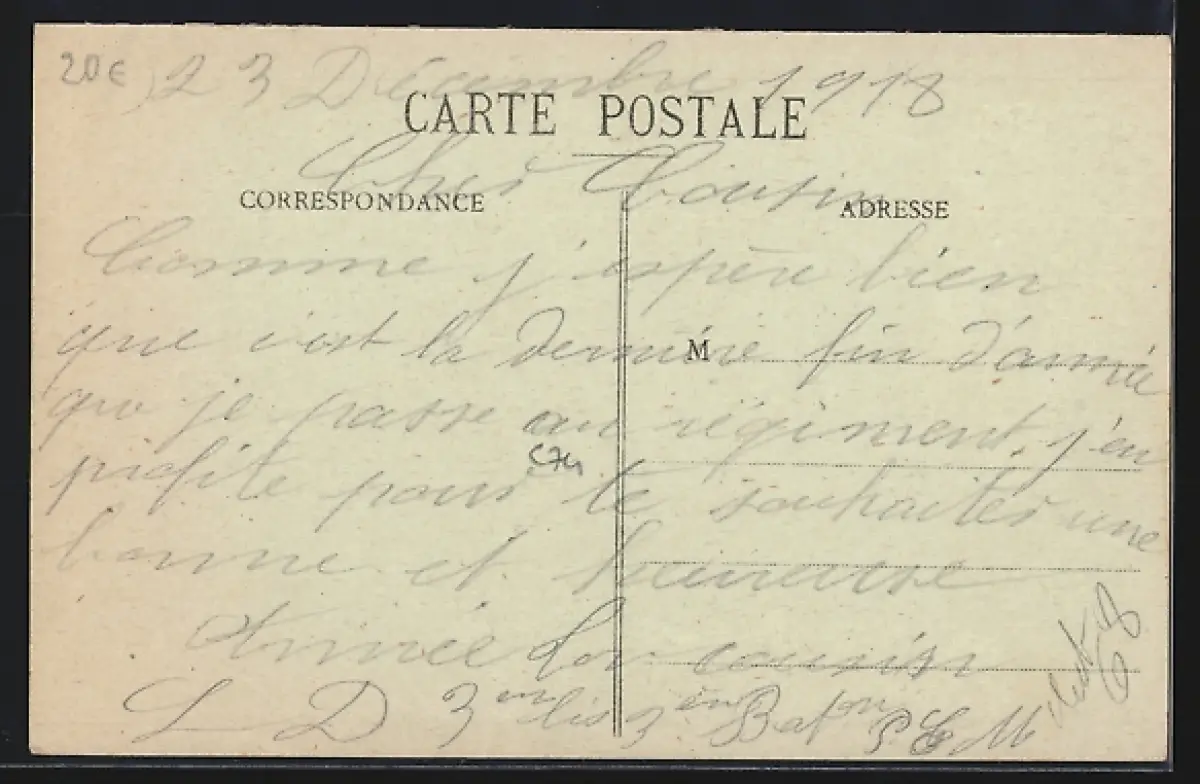 20€
23 Décembre 1918
CARTE POSTALE
Cher Cousin
CORRESPONDANCE
ADRESSE
Comme j'espère bien
que c'est la dernière fin d'année
M
que je passe au régiment, j'en
profite pour te souhaiter une
bonne et heureuse
Année Ton cousin
L D 3 bis 3 Baton